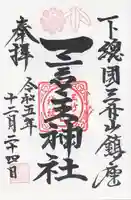 下總國三山鎮座
二宮神社
奉拝
令和五年
十二月二十四日